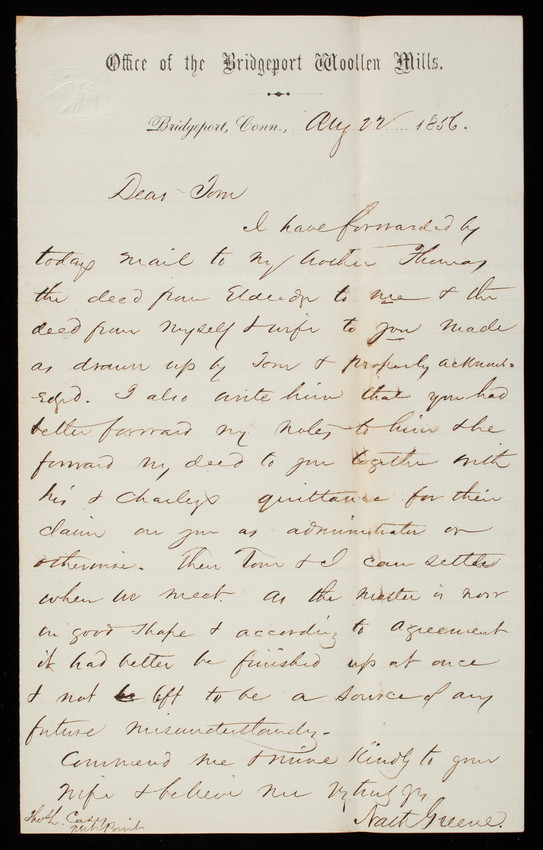 Office of the Bridgeport Woollen Mills.
Bridgeport, Conn., Aug 22 1856.
Dear Tom
I have forwarded by
todays mail to my brother Thomas
the deed from Eldredge to me & the
deed from myself & wife to you made
as drawn up by Tom & properly acknowl=
-edg'd. I also write him that you had
better forward my notes to him & he
forward my deed to you together with
his & Charleys quittance for their
claim on you as administrator or
otherwise. Then Tom & I can settle
when we meet. As the matter is now
in good shape & according to agreement
it had better be finished up at once
& not left to be a source of any
future misunderstandg.
Commend me & mine kindly to your
wife & believe me Vy truly yrs
Nath Greene.
Thos L. Casey
West Point